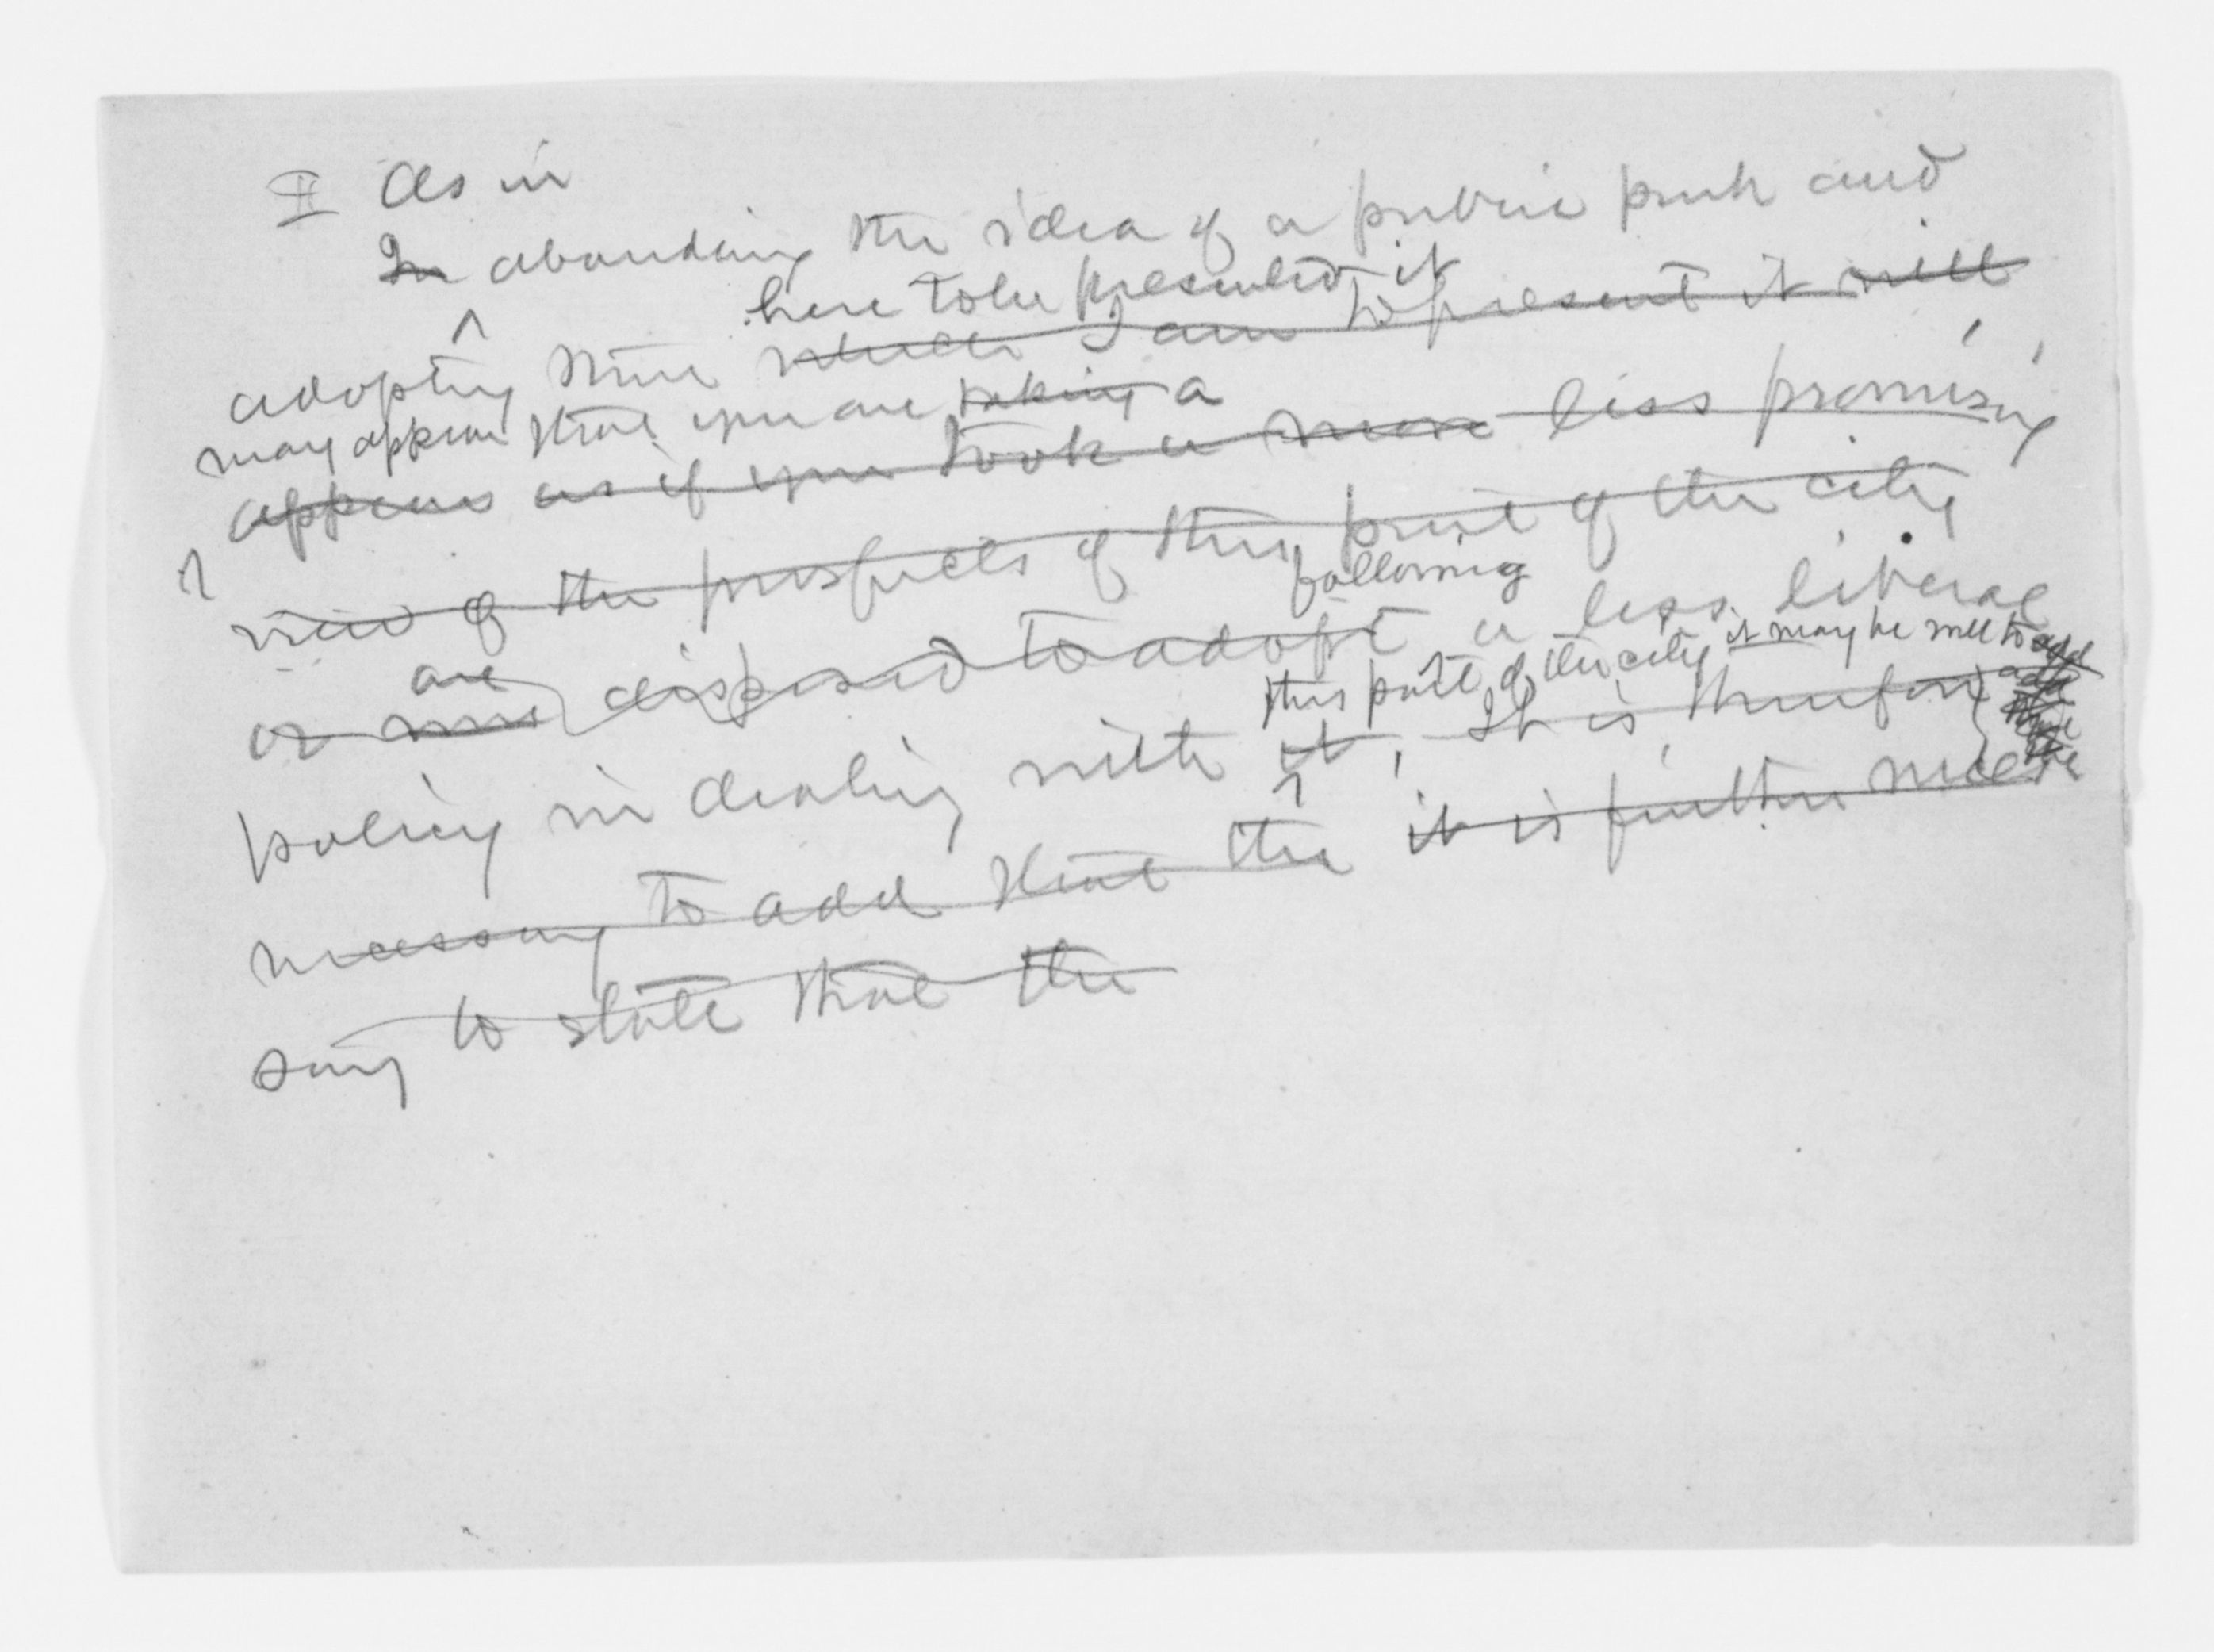 II As in
In abanding the idea of a public park and
here to be presented it
adopting that which I am to present it will
may appear that you are taking a
appear as if you took a more less promising
view of the prospects of this part of the city
following
are
or were disposed to adopt a less liberal
this part of the city it may be well to add
policy in dealing with it, It is, therefore,
necessary to add that the it is further neces
sary to state that the